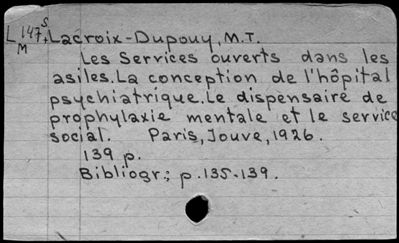 L147S+ Lacroix-Dupouy, M.T.
M
Les Services ouverts dans les
asiles. La conception de l'hôpital
psychiatrique. Le dispensaire de
prophylaxie mentale et le service
social. Paris, Jouve, 1926.
139 p.
Bibliogr.; p. 135-139.